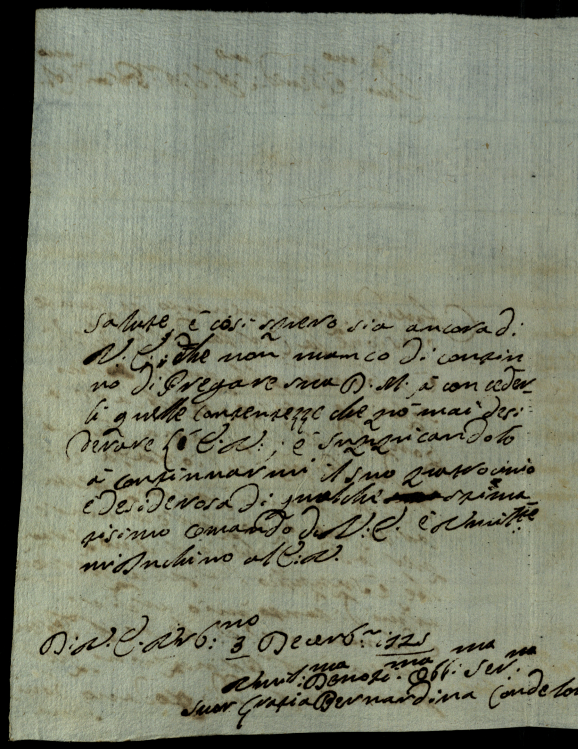 salute, è così spero sia ancora di
V. E., che non manco di contin
vo di Pregare sua D. M. à conceder-
li quelle contentezze che nõ mai desi
derare l' E. V., è suppricandolo
à continuarmi il suo patrocinio
è desiderosa di qualche stima
tisimo comando di V. E. è Vmilte
mi Inchino al E. V.
D: V. E. Vrb:no 3 Decemb.r 1725
Vmil:ma Devoti:ma Obb:ma Ser:na
Suor Gratia Bernardina Conde